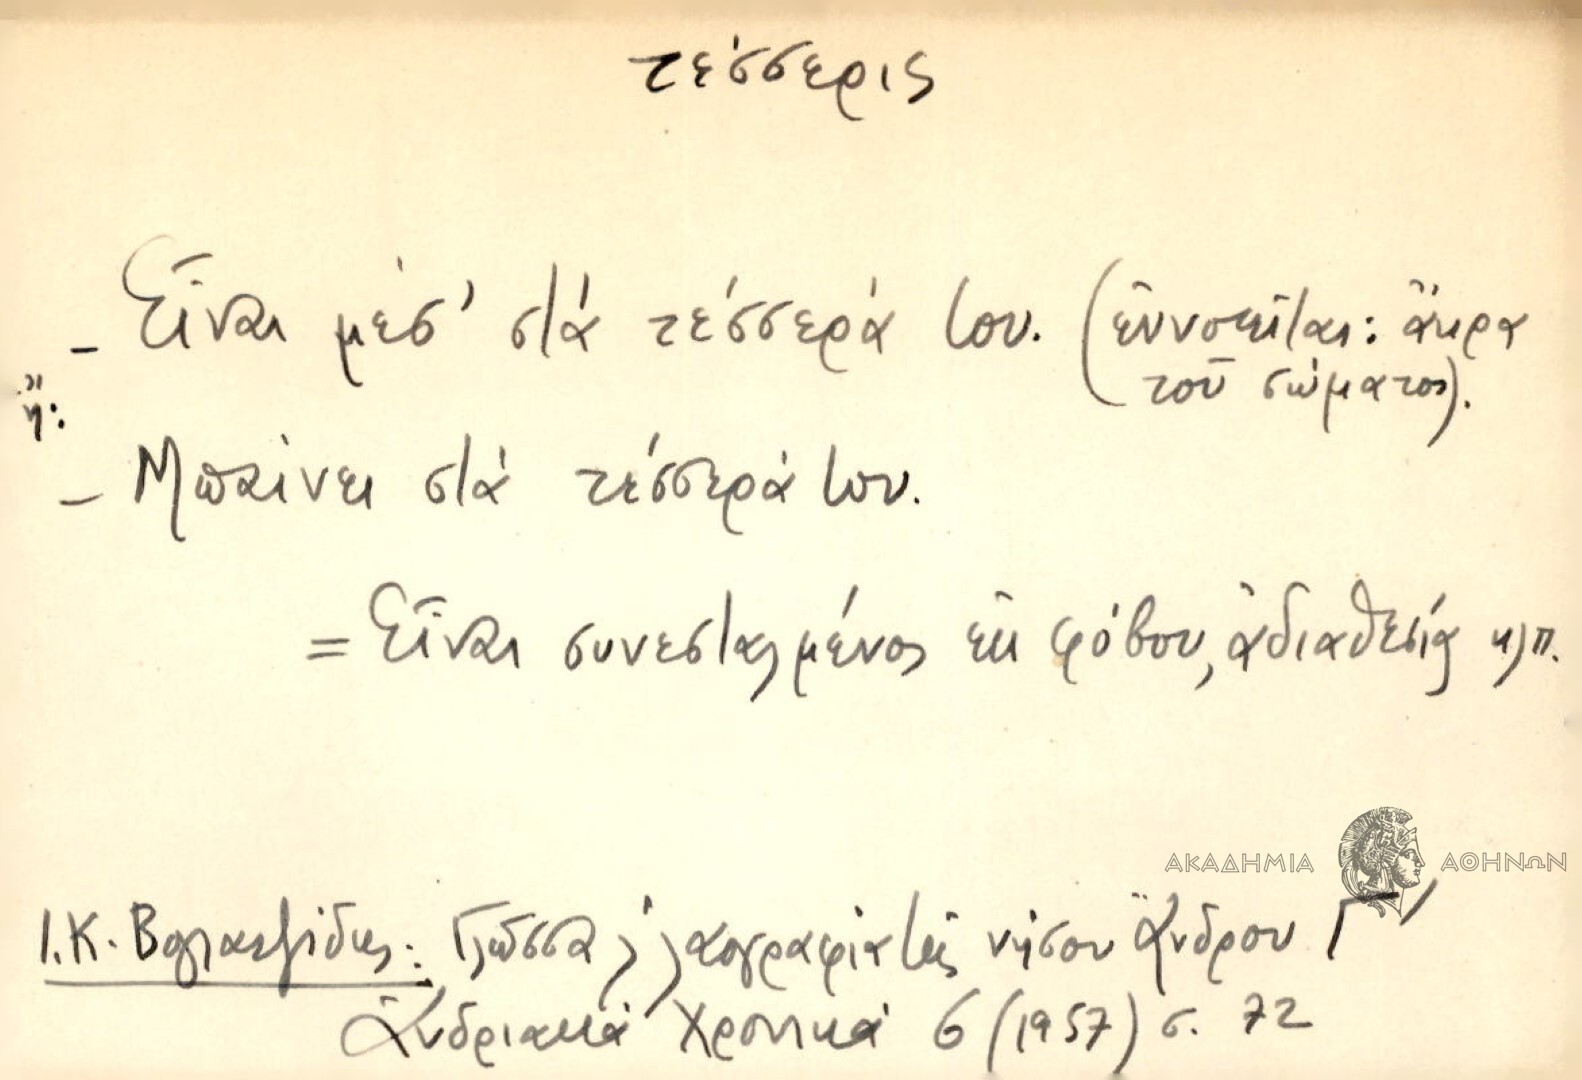 τέσσερις
– Εἶναι μέσ' στά τέσσερά του. (ἐννοεῖται: ἄκρα
τοῦ σώματος).
ἤ:
– Μπαίνει στά τέσσερά του.
= Εἶναι συνεσταλμένος ἐκ φόβου, ἀδιαθεσίας κλπ.
ΑΚΑΔΗΜΙΑ ΑΘΗΝΩΝ
Ι. Κ. Βογιατζίδης: Γλῶσσα λαογραφία τῆς νήσου Ἄνδρου Γ'
Ἀνδριακά Χρονικά 6 (1957) σ. 72